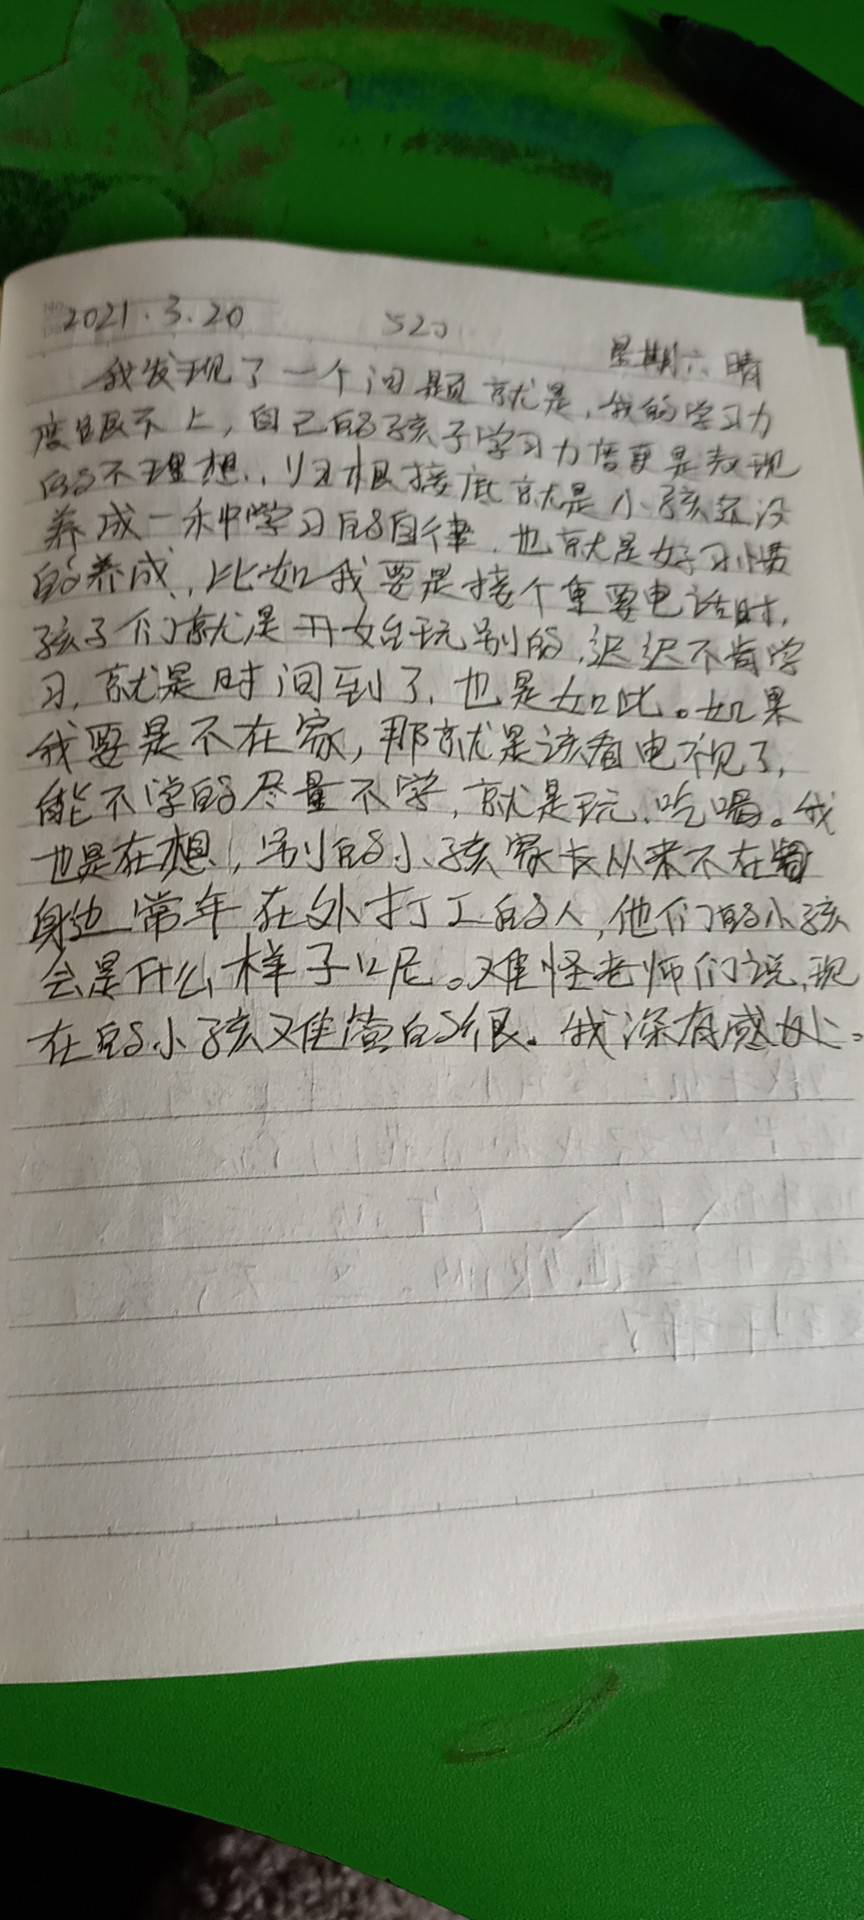 2021.3.20 520 星期六 晴
我发现了一个问题就是,我的学习力
度跟不上,自己的孩子学习力度更是表现
的不理想,归根接底就是小孩还没
养成一种学习的自律,也就是好习惯
的养成,比如我要是接个重要电话时,
孩子们就是开始玩别的,迟迟不肯学
习,就是时间到了,也是如此。如果
我要是不在家,那就是该看电视了,
能不学的尽量不学,就是玩、吃喝。我
也是在想,别的小孩家长从来不在
身边常年在外打工的人,他们的小孩
会是什么样子呢。难怪老师们说,现
在的小孩难管的很。我深有感处。